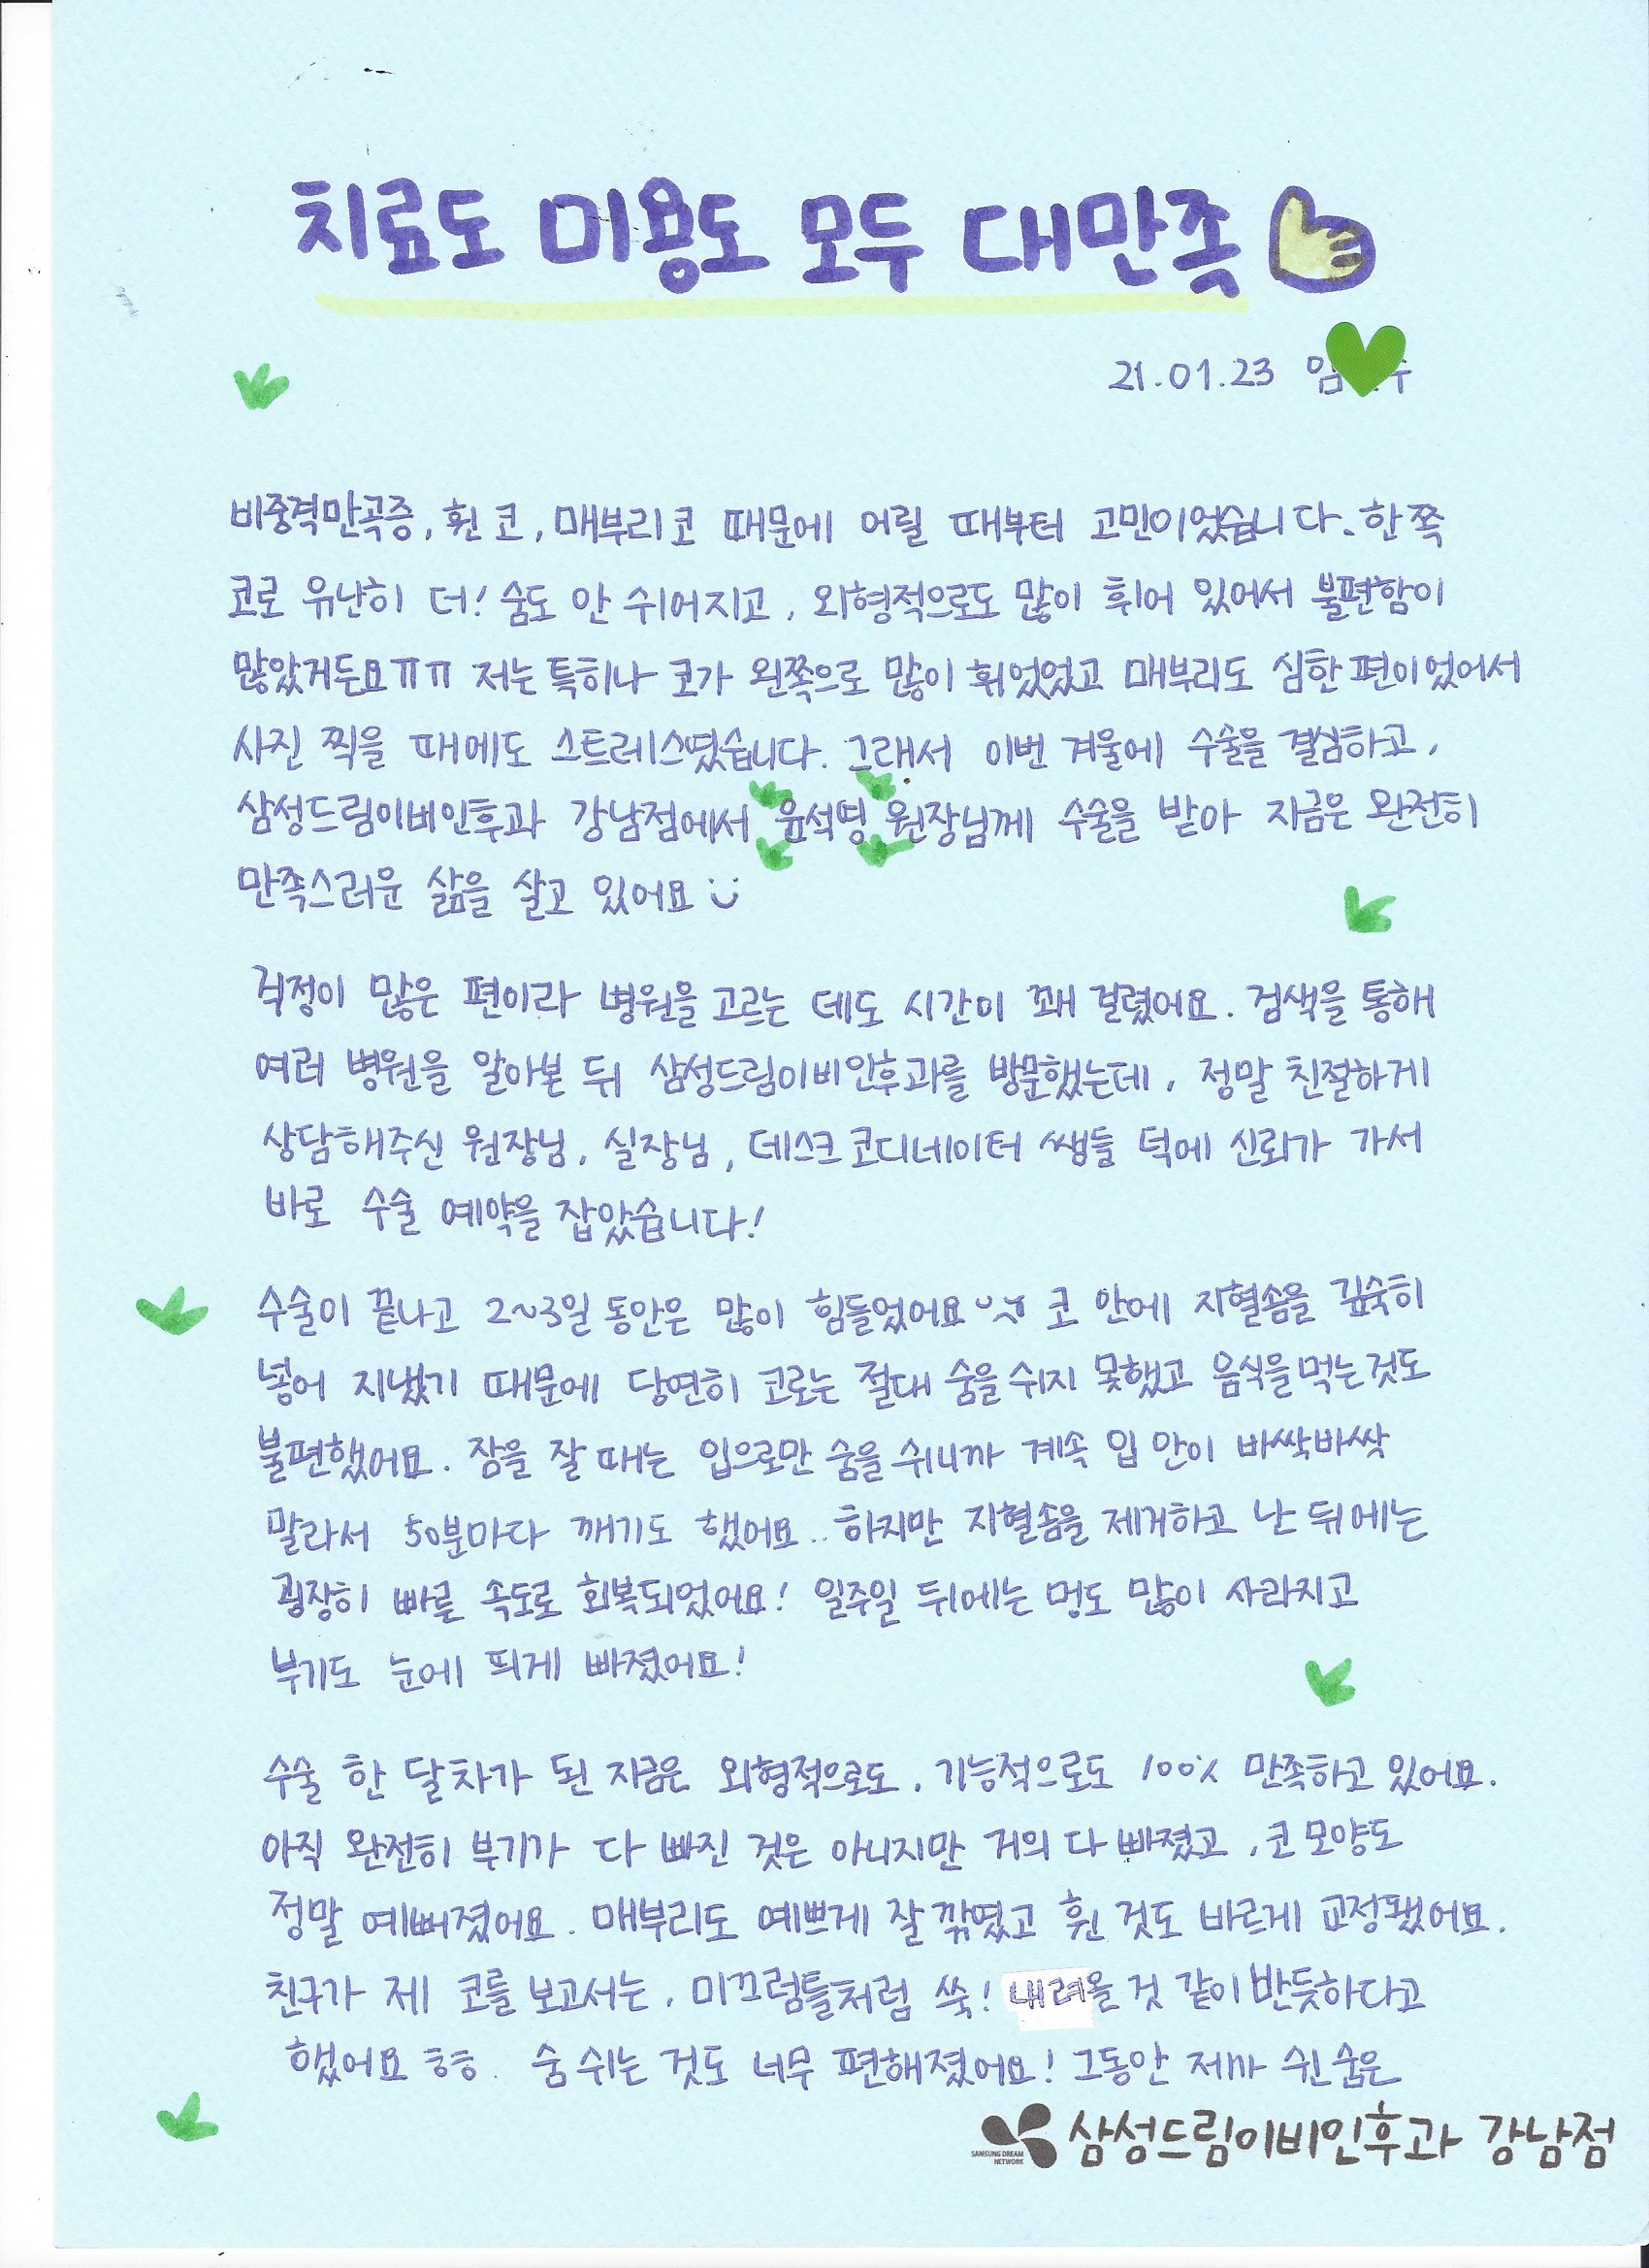 치료도 미용도 모두 대만족
21.01.23 임
비중격만곡증, 휜 코, 매부리코 때문에 어릴 때부터 고민이었습니다. 한쪽
코로 유난히 더! 숨도 안 쉬어지고, 외형적으로도 많이 휘어 있어서 불편함이
많았거든요ㅠㅠ 저는 특히나 코가 왼쪽으로 많이 휘었었고 매부리도 심한 편이었어서
사진 찍을 때에도 스트레스였습니다. 그래서 이번 겨울에 수술을 결심하고,
삼성드림이비인후과 강남점에서 윤석영 원장님께 수술을 받아 지금은 완전히
만족스러운 삶을 살고 있어요
걱정이 많은 편이라 병원을 고르는 데도 시간이 꽤 걸렸어요. 검색을 통해
여러 병원을 알아본 뒤 삼성드림이비인후과를 방문했는데, 정말 친절하게
상담해주신 원장님, 실장님, 데스크 코디네이터 쌤들 덕에 신뢰가 가서
바로 수술 예약을 잡았습니다!
수술이 끝나고 2~3일 동안은 많이 힘들었어요 코 안에 지혈솜을 깊숙히
넣어 지냈기 때문에 당연히 코로는 절대 숨을 쉬지 못했고 음식을 먹는 것도
불편했어요. 잠을 잘 때는 입으로만 숨을 쉬니까 계속 입 안이 바싹바싹
말라서 50분마다 깨기도 했어요.. 하지만 지혈솜을 제거하고 난 뒤에는
굉장히 빠른 속도로 회복되었어요! 일주일 뒤에는 멍도 많이 사라지고
부기도 눈에 띄게 빠졌어요!
수술 한 달차가 된 지금은 외형적으로도, 기능적으로도 100% 만족하고 있어요.
아직 완전히 부기가 다 빠진 것은 아니지만 거의 다 빠졌고, 코 모양도
정말 예뻐졌어요. 매부리도 예쁘게 잘 깎였고 휜 것도 바르게 교정됐어요.
친구가 제 코를 보고서는, 미끄럼틀처럼 쓱! 내려올 것 같이 반듯하다고
했어요 ㅎㅎ. 숨 쉬는 것도 너무 편해졌어요! 그동안 제가 쉰 숨은
SAMSUNG DREAM NETWORK 삼성드림이비인후과 강남점